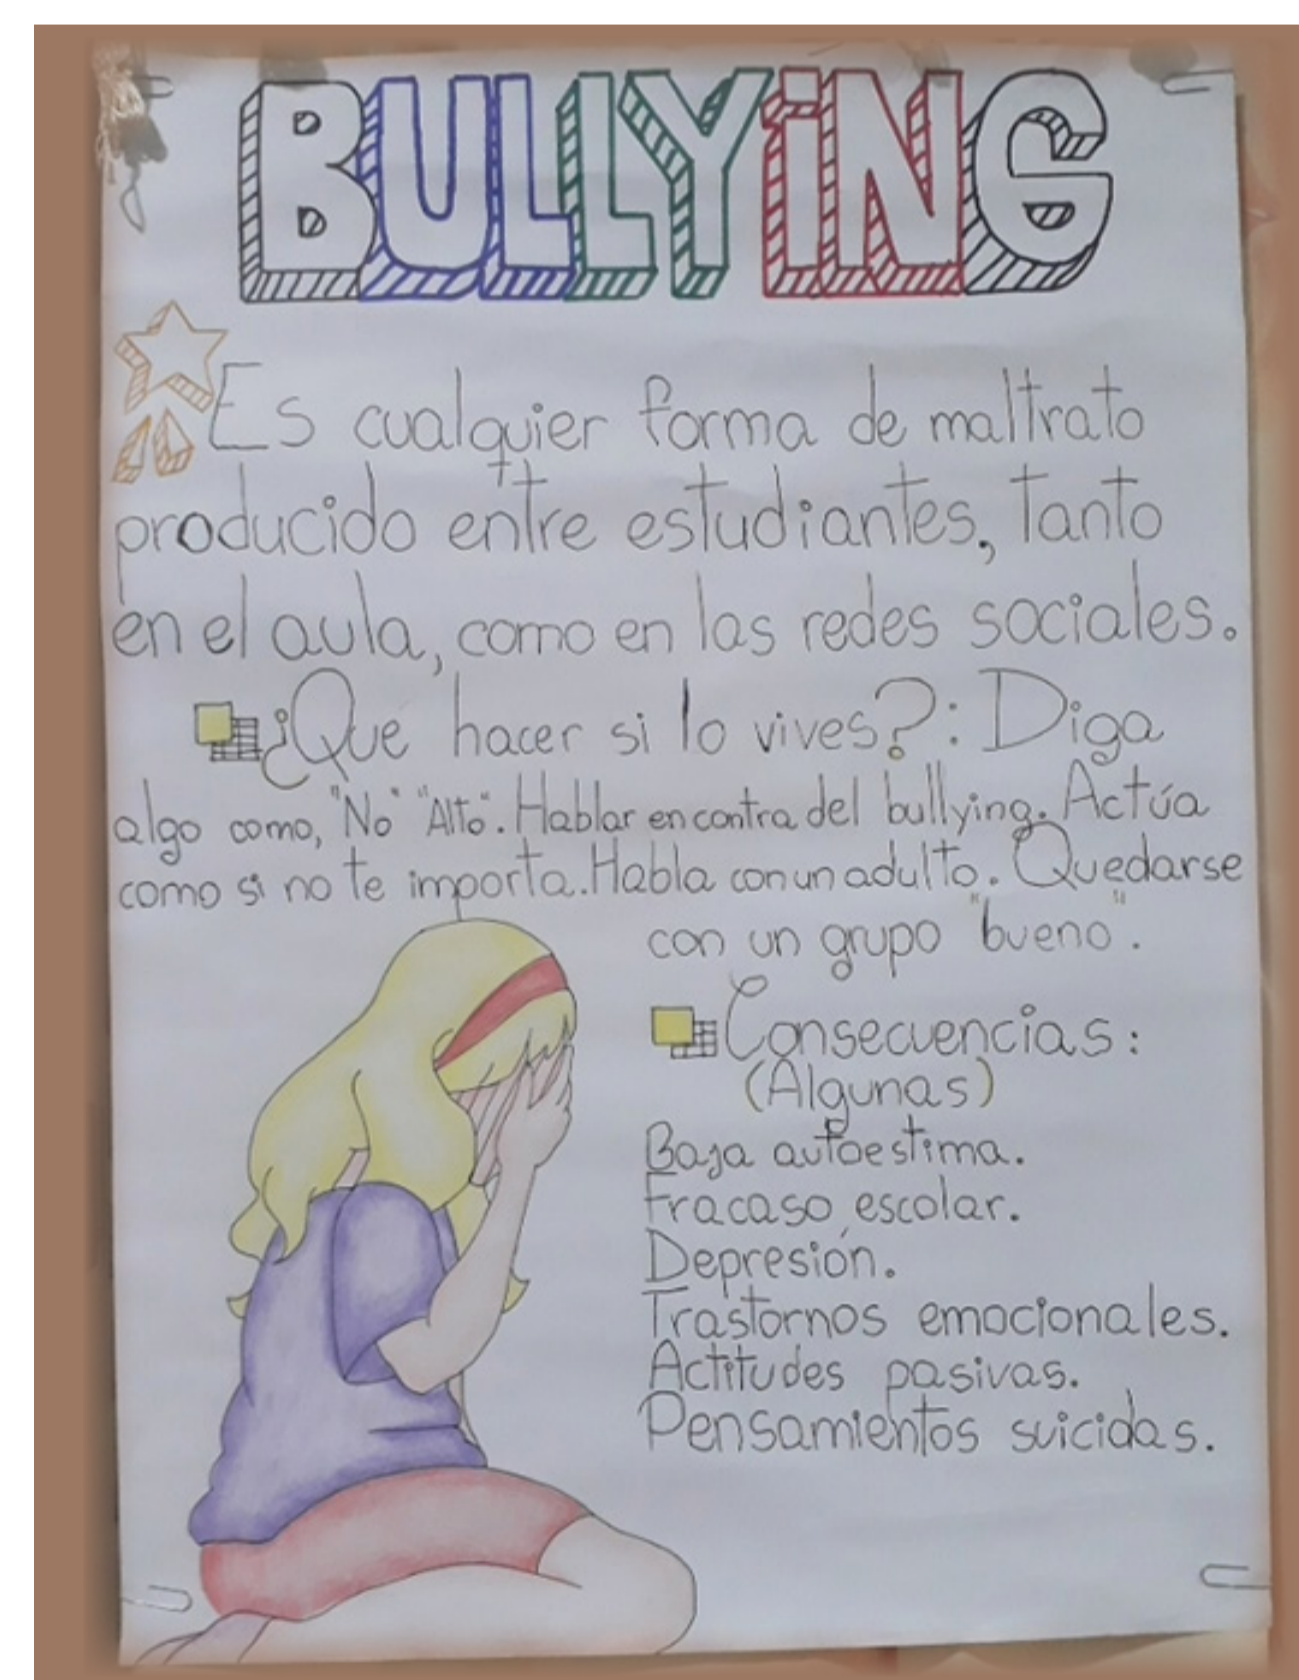 BULLYiNG
Es cualquier forma de maltrato
producido entre estudiantes, tanto
en el aula, como en las redes sociales.
¿Que hacer si lo vives?: Diga
algo como, "No" "Alto". Hablar en contra del bullying. Actúa
como si no te importa. Habla con un adulto. Quedarse
con un grupo "bueno".
Consecuencias:
(Algunas)
Baja autoestima.
Fracaso escolar.
Depresión.
Trastornos emocionales.
Actitudes pasivas.
Pensamientos suicidas.